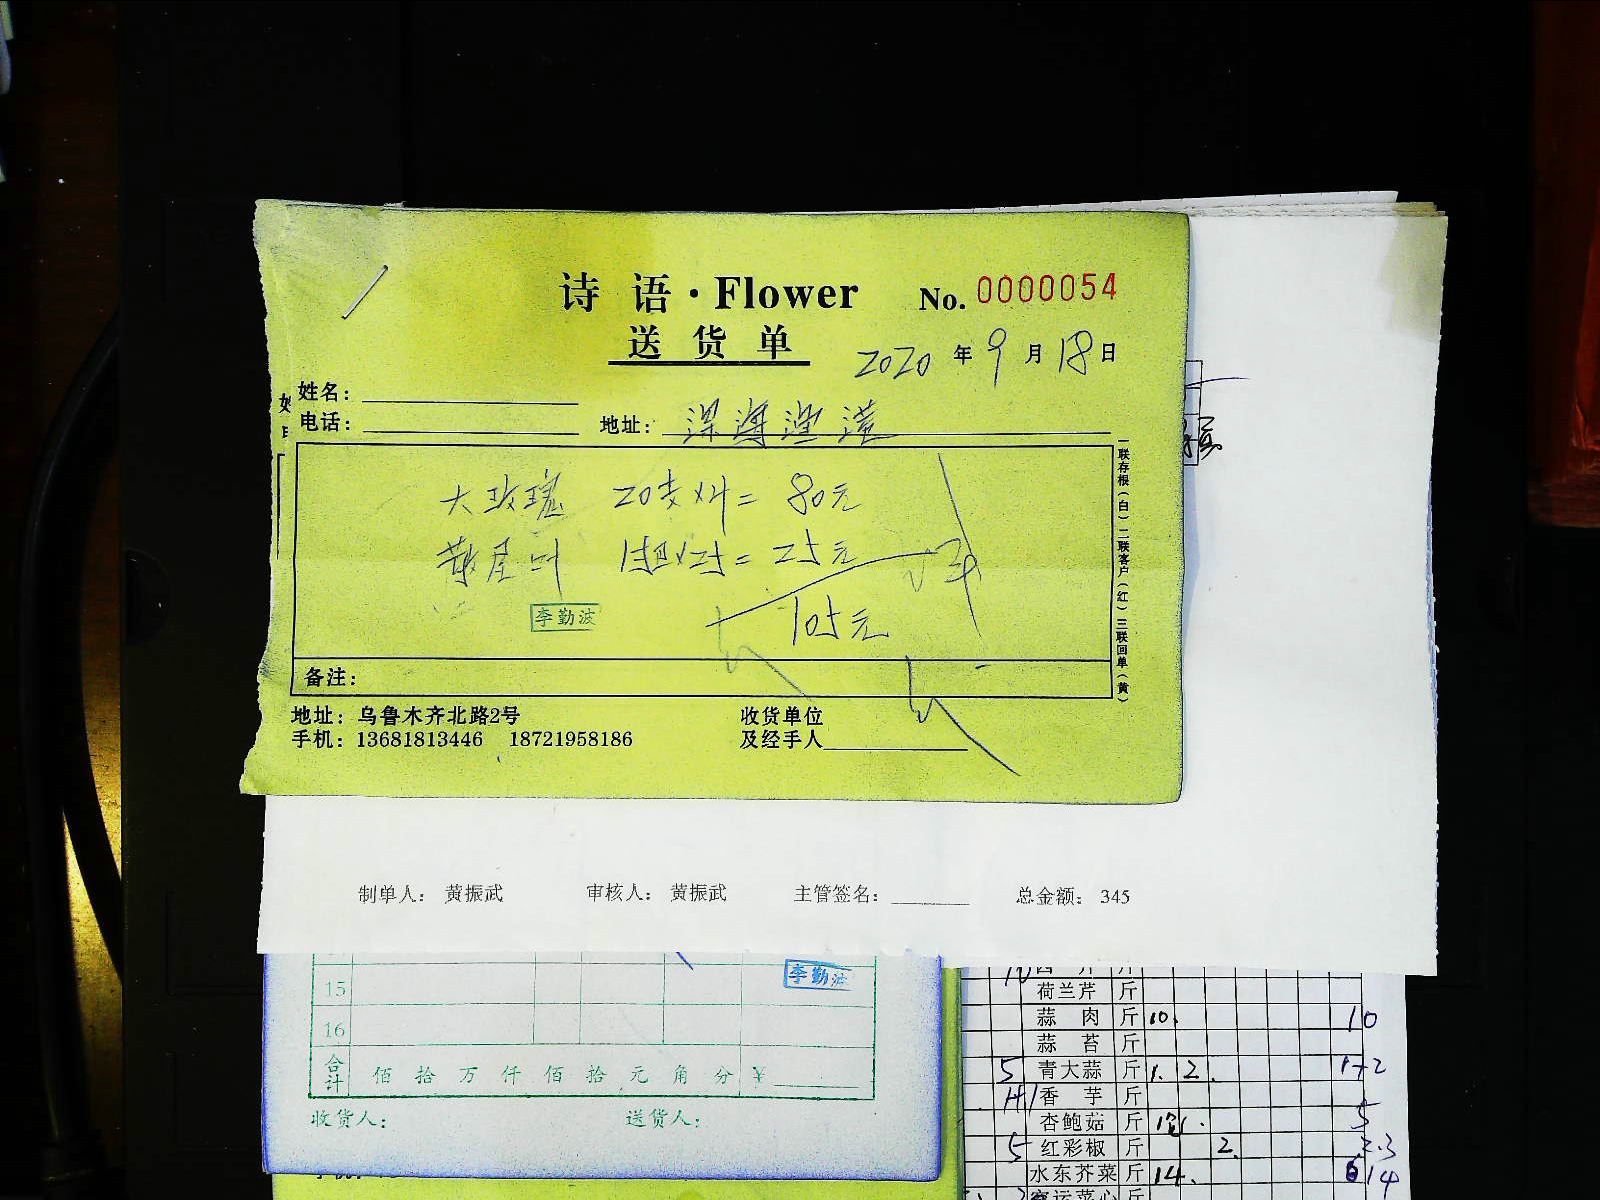 诗语·Flower No. 0000054
送货单
2020年9月18日
姓名:
电话: 地址: 深海渔港
大玫瑰 20支×4= 80元
散尾叶 1把×25= 25元
105元
李勤波
备注:
一联存根(白) 二联客户(红) 三联回单(黄)
地址: 乌鲁木齐北路2号 收货单位
手机: 13681813446 18721958186 及经手人
制单人: 黄振武 审核人: 黄振武 主管签名: 总金额: 345
李勤波
15
16
合计 佰拾万仟佰拾元角分 ¥
收货人: 送货人:
荷兰芹 斤
蒜肉 斤 10. 10
蒜苔 斤
5 青大蒜 斤 1. 2. 1+2
香芋 斤
杏鲍菇 斤 5
5 红彩椒 斤 2.
水东芥菜 斤 14. 14